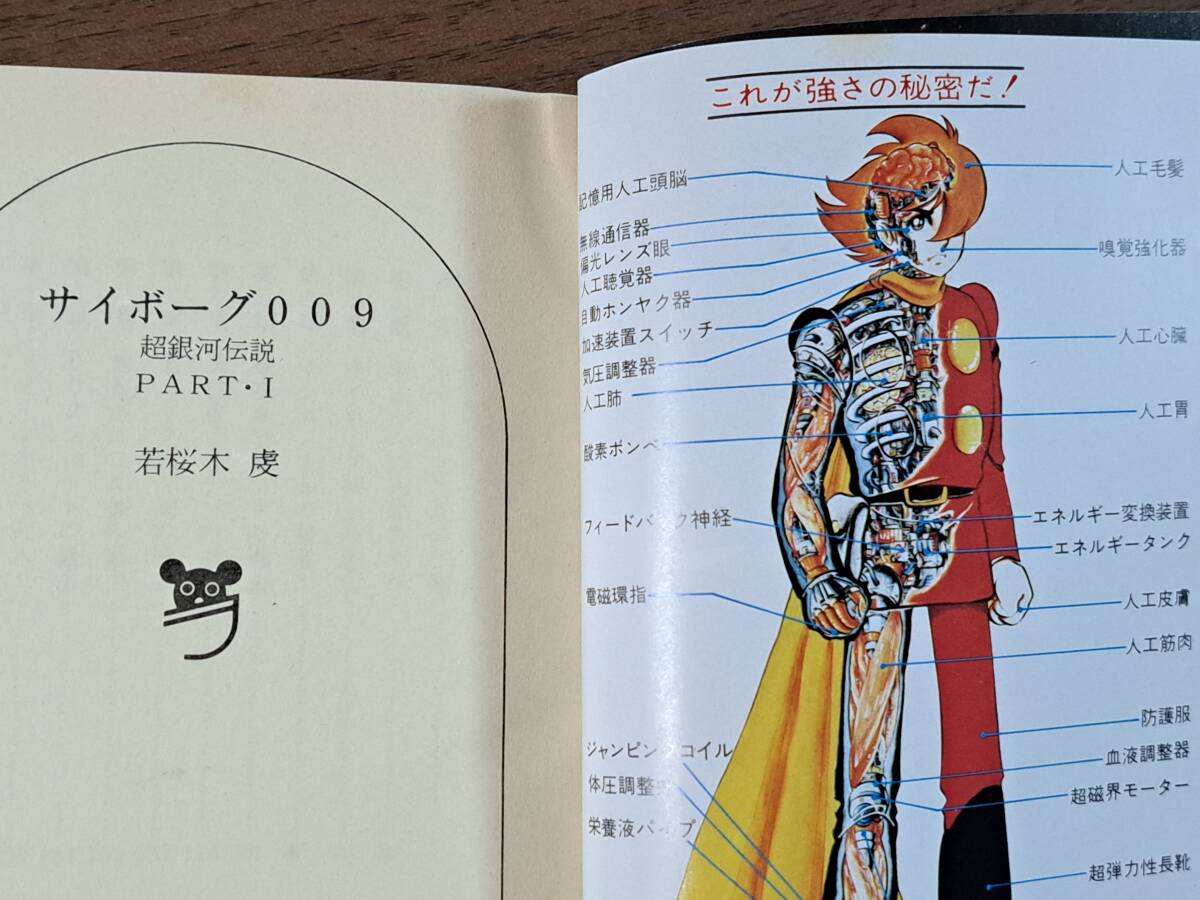 サイボーグ009
超銀河伝説
PART・I
若桜木 虔
これが強さの秘密だ！
記憶用人工頭脳
無線通信器
偏光レンズ眼
人工聴覚器
自動ホンヤク器
加速装置スイッチ
気圧調整器
人工肺
酸素ボンベ
フィードバック神経
電磁環指
ジャンピングコイル
体圧調整
栄養液パイプ
人工毛髪
嗅覚強化器
人工心臓
人工胃
エネルギー変換装置
エネルギータンク
人工皮膚
人工筋肉
防護服
血液調整器
超磁界モーター
超弾力性長靴